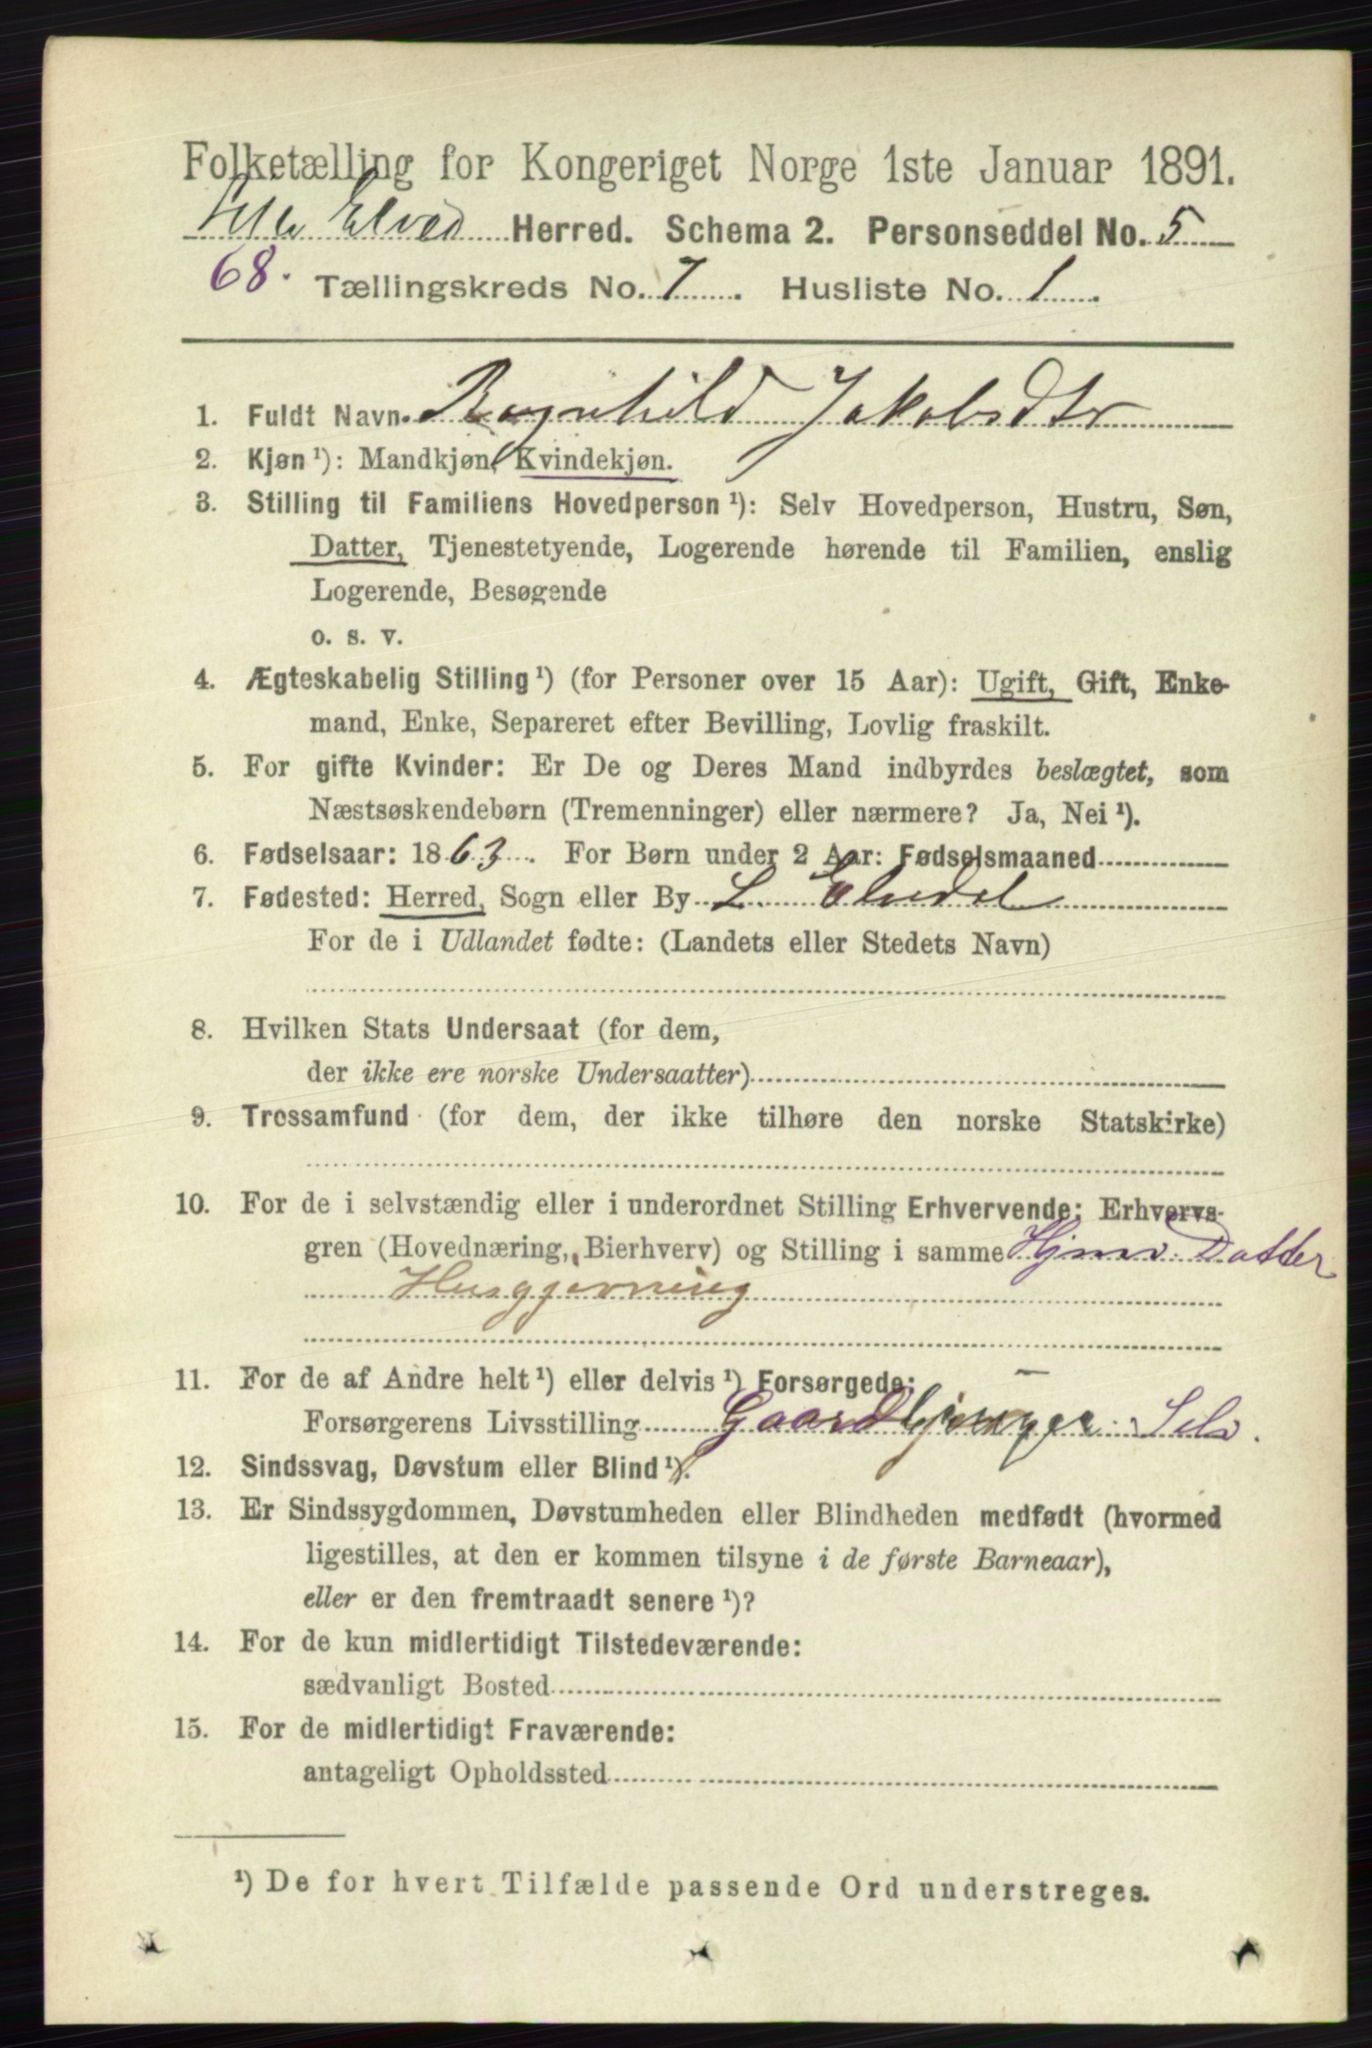 Folketælling for Kongeriget Norge 1ste Januar 1891.
Lille Elved Herred. Schema 2. Personseddel No. 5
68. Tællingskreds No. 7. Husliste No. 1.
1. Fuldt Navn. Ragnhild Jakobsdtr
2. Kjøn ¹): Mandkjøn, Kvindekjøn.
3. Stilling til Familiens Hovedperson ¹): Selv Hovedperson, Hustru, Søn,
Datter, Tjenestetyende, Logerende hørende til Familien, enslig
Logerende, Besøgende
o. s. v.
4. Ægteskabelig Stilling ¹) (for Personer over 15 Aar): Ugift, Gift, Enke-
mand, Enke, Separeret efter Bevilling, Lovlig fraskilt.
5. For gifte Kvinder: Er De og Deres Mand indbyrdes beslægtet, som
Næstsøskendebørn (Tremenninger) eller nærmere? Ja, Nei ¹).
6. Fødselsaar: 1863. For Børn under 2 Aar: Fødselsmaaned
7. Fødested: Herred, Sogn eller By L. Elvedal
For de i Udlandet fødte: (Landets eller Stedets Navn)
8. Hvilken Stats Undersaat (for dem,
der ikke ere norske Undersaatter)
9. Trossamfund (for dem, der ikke tilhøre den norske Statskirke)
10. For de i selvstændig eller i underordnet Stilling Erhvervende: Erhvervs-
gren (Hovednæring, Bierhverv) og Stilling i samme Hjmv. Datter
Husgjerning
11. For de af Andre helt ¹) eller delvis ¹) Forsørgede:
Forsørgerens Livsstilling Gaardbruger Selv.
12. Sindssvag, Døvstum eller Blind ¹).
13. Er Sindssygdommen, Døvstumheden eller Blindheden medfødt (hvormed
ligestilles, at den er kommen tilsyne i de første Barneaar),
eller er den fremtraadt senere ¹)?
14. For de kun midlertidigt Tilstedeværende:
sædvanligt Bosted
15. For de midlertidigt Fraværende:
antageligt Opholdssted
¹) De for hvert Tilfælde passende Ord understreges.